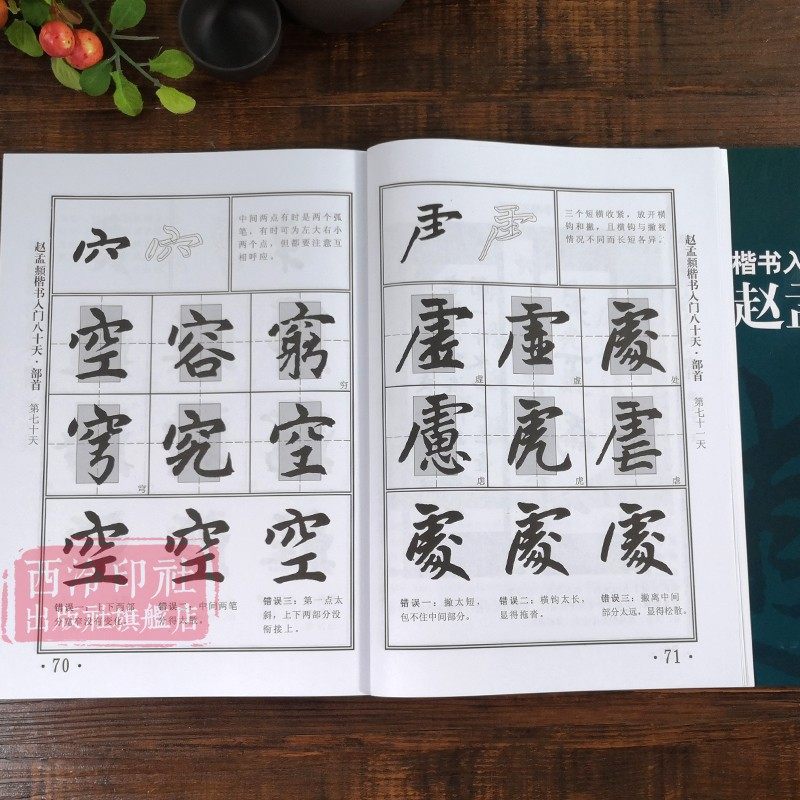 赵孟頫楷书入门八十天·部首
第七十天
中间两点有时是两个弧
笔，有时可为左大右小
两个点，但都要注意互
相呼应。
空 容 窮
穷
穹 究 空
穹
空 空 空
错误一：上下两部
分宽窄没有变化。
错误二：中间两笔
错误三：第一点太
斜，上下两部分没
衔接上。
·70·
西泠印社
出版社旗舰店
三个短横收紧，放开横
钩和撇，且横钩与撇视
情况不同而长短各异。
虚 虚 處
虚 虚 处
慮 虎 虐
虑 虎 虐
處 處 處
错误一：撇太短，
包不住中间部分。
错误二：横钩太长，
显得拖沓。
错误三：撇离中间
部分太远，显得松散。
·71·
赵孟頫楷书入门八十天·部首
第七十一天
楷书入
赵孟